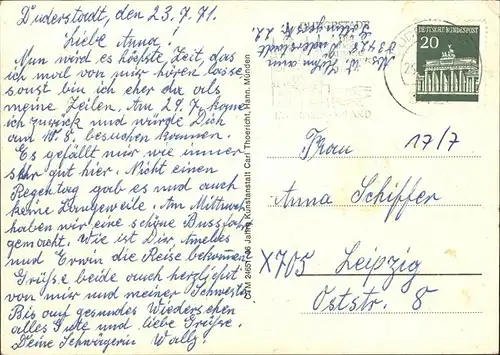 Duderstadt, den 23.7.71.
Liebe Anna!
Nun wird es höchste Zeit, das
ich mal von mir hören lasse,
sonst bin ich eher da als
meine Zeilen. Am 29.7. komme
ich zurück und würde Dich
am 10.8. besuchen kommen.
Es gefällt mir wie immer
sehr gut hier. Nicht einen
Regentag gab es und auch
keine Langeweile. Am Mittwoch
haben wir eine schöne Busfahrt
gemacht. Wie ist Dir,
und Erwin die Reise bekommen
Grüße beide auch herzlichst
von mir und meiner Schwester
Bis auf gesundes Wiedersehen
alles Gute und liebe Grüße.
Deine Schwägerin Wally.
CTM 24651 Jahre Kunstanstalt Carl Thoericht, Hann. Münden
Abs.
3428 Duderstadt
DEUTSCHE BUNDESPOST
20
17/7
Frau
Anna Schiffer
X705 Leipzig
Oststr. 8